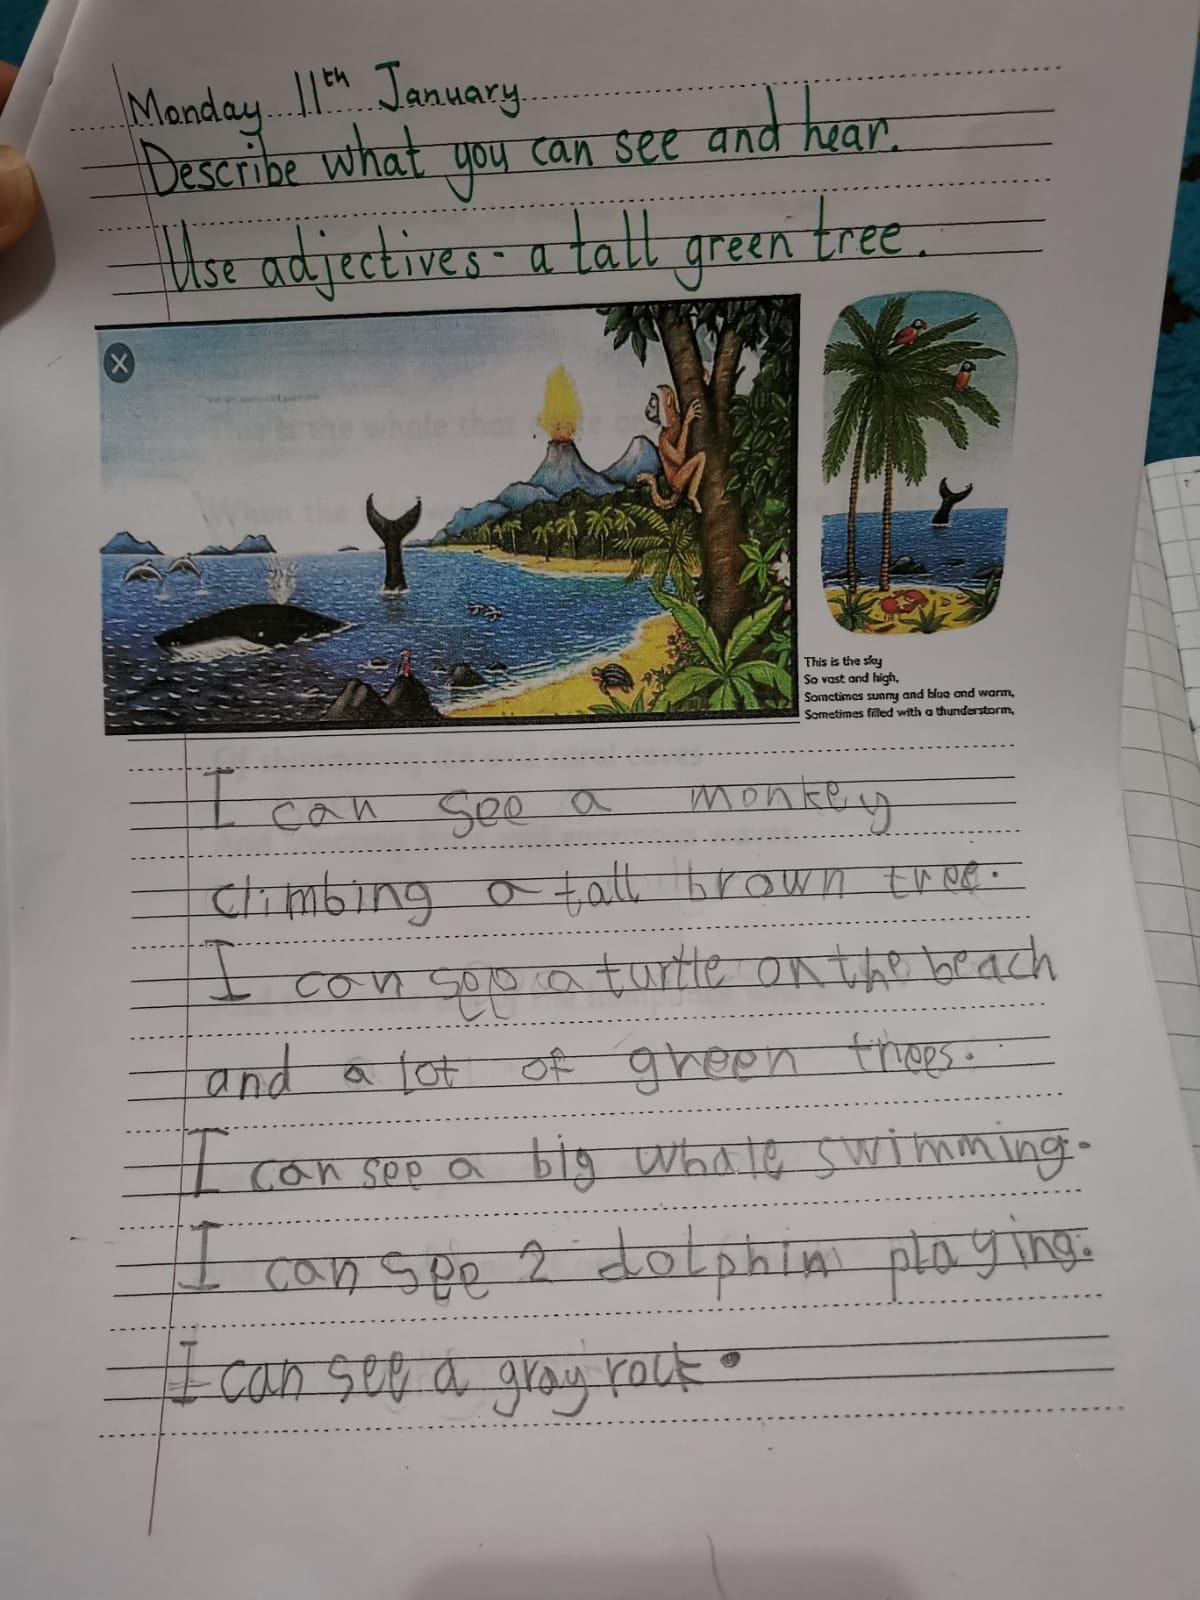 Monday 11th January
Describe what you can see and hear.
Use adjectives - a tall green tree.
This is the sky
So vast and high,
Sometimes sunny and blue and warm,
Sometimes filled with a thunderstorm,
I can see a monkey
climbing a tall brown tree.
I can see a turtle on the beach
and a lot of green trees.
I can see a big whale swimming.
I can see 2 dolphin playing.
I can see a gray rock.